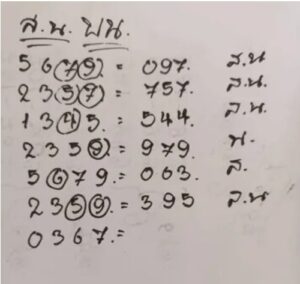 ส.น. บน.
5679. = 097. ส.น
2357. = 757. ส.น.
1345. = 544. ส.น.
2359. = 979. น.
5679. = 063. ส.
2359. = 395 ส.น
0367. =